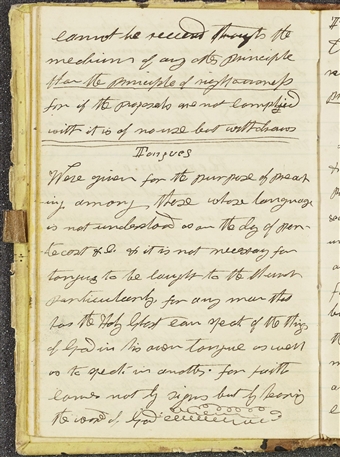 cannot be received through the
medium of any other principle
than the principle of righteousness
for if the proposals are not complyed
with it is of no use but withdraws
Tongues
Were given for the purpose of preach
ing among those whose language
is not understood as on the day of pen-
tecost &c & it is not necessary for
tongues to be taught to the Church
particularly, for any man that
has the Holy Ghost can speak of the things
of God in his own tongue as well
as to speak in another. for faith
comes not by signs but by hearing
the word of God